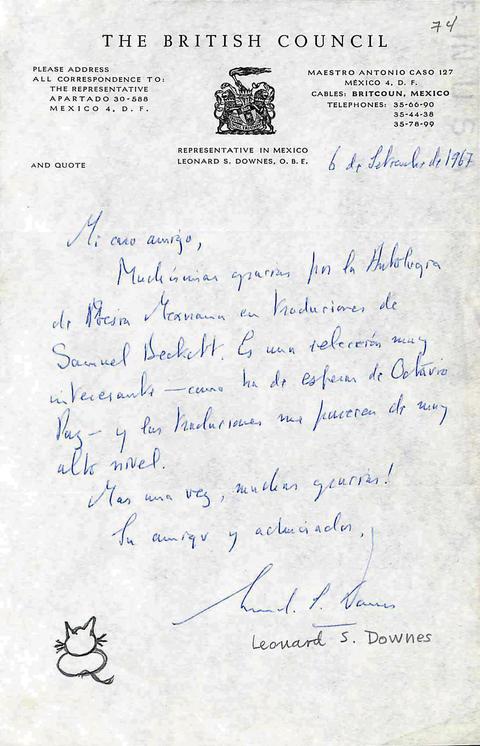 74
THE BRITISH COUNCIL
PLEASE ADDRESS
ALL CORRESPONDENCE TO:
THE REPRESENTATIVE
APARTADO 30-588
MEXICO 4, D. F.
AND QUOTE
REPRESENTATIVE IN MEXICO
LEONARD S. DOWNES, O. B. E.
MAESTRO ANTONIO CASO 127
MÉXICO 4, D. F.
CABLES: BRITCOUN, MEXICO
TELEPHONES: 35-66-90
35-44-38
35-78-99
6 de Setiembre de 1967
Mi caro amigo,
Muchísimas gracias por la Antología
de Poesia Mexicana en traduciones de
Samuel Beckett. Es una selección muy
interesante — como ha de esperar de Octavio
Paz — y las traduciones me parecen de muy
alto nivel.
Mas una vez, muchas gracias!
Su amigo y admirador,
Leonard S. Downes
Leonard S. Downes